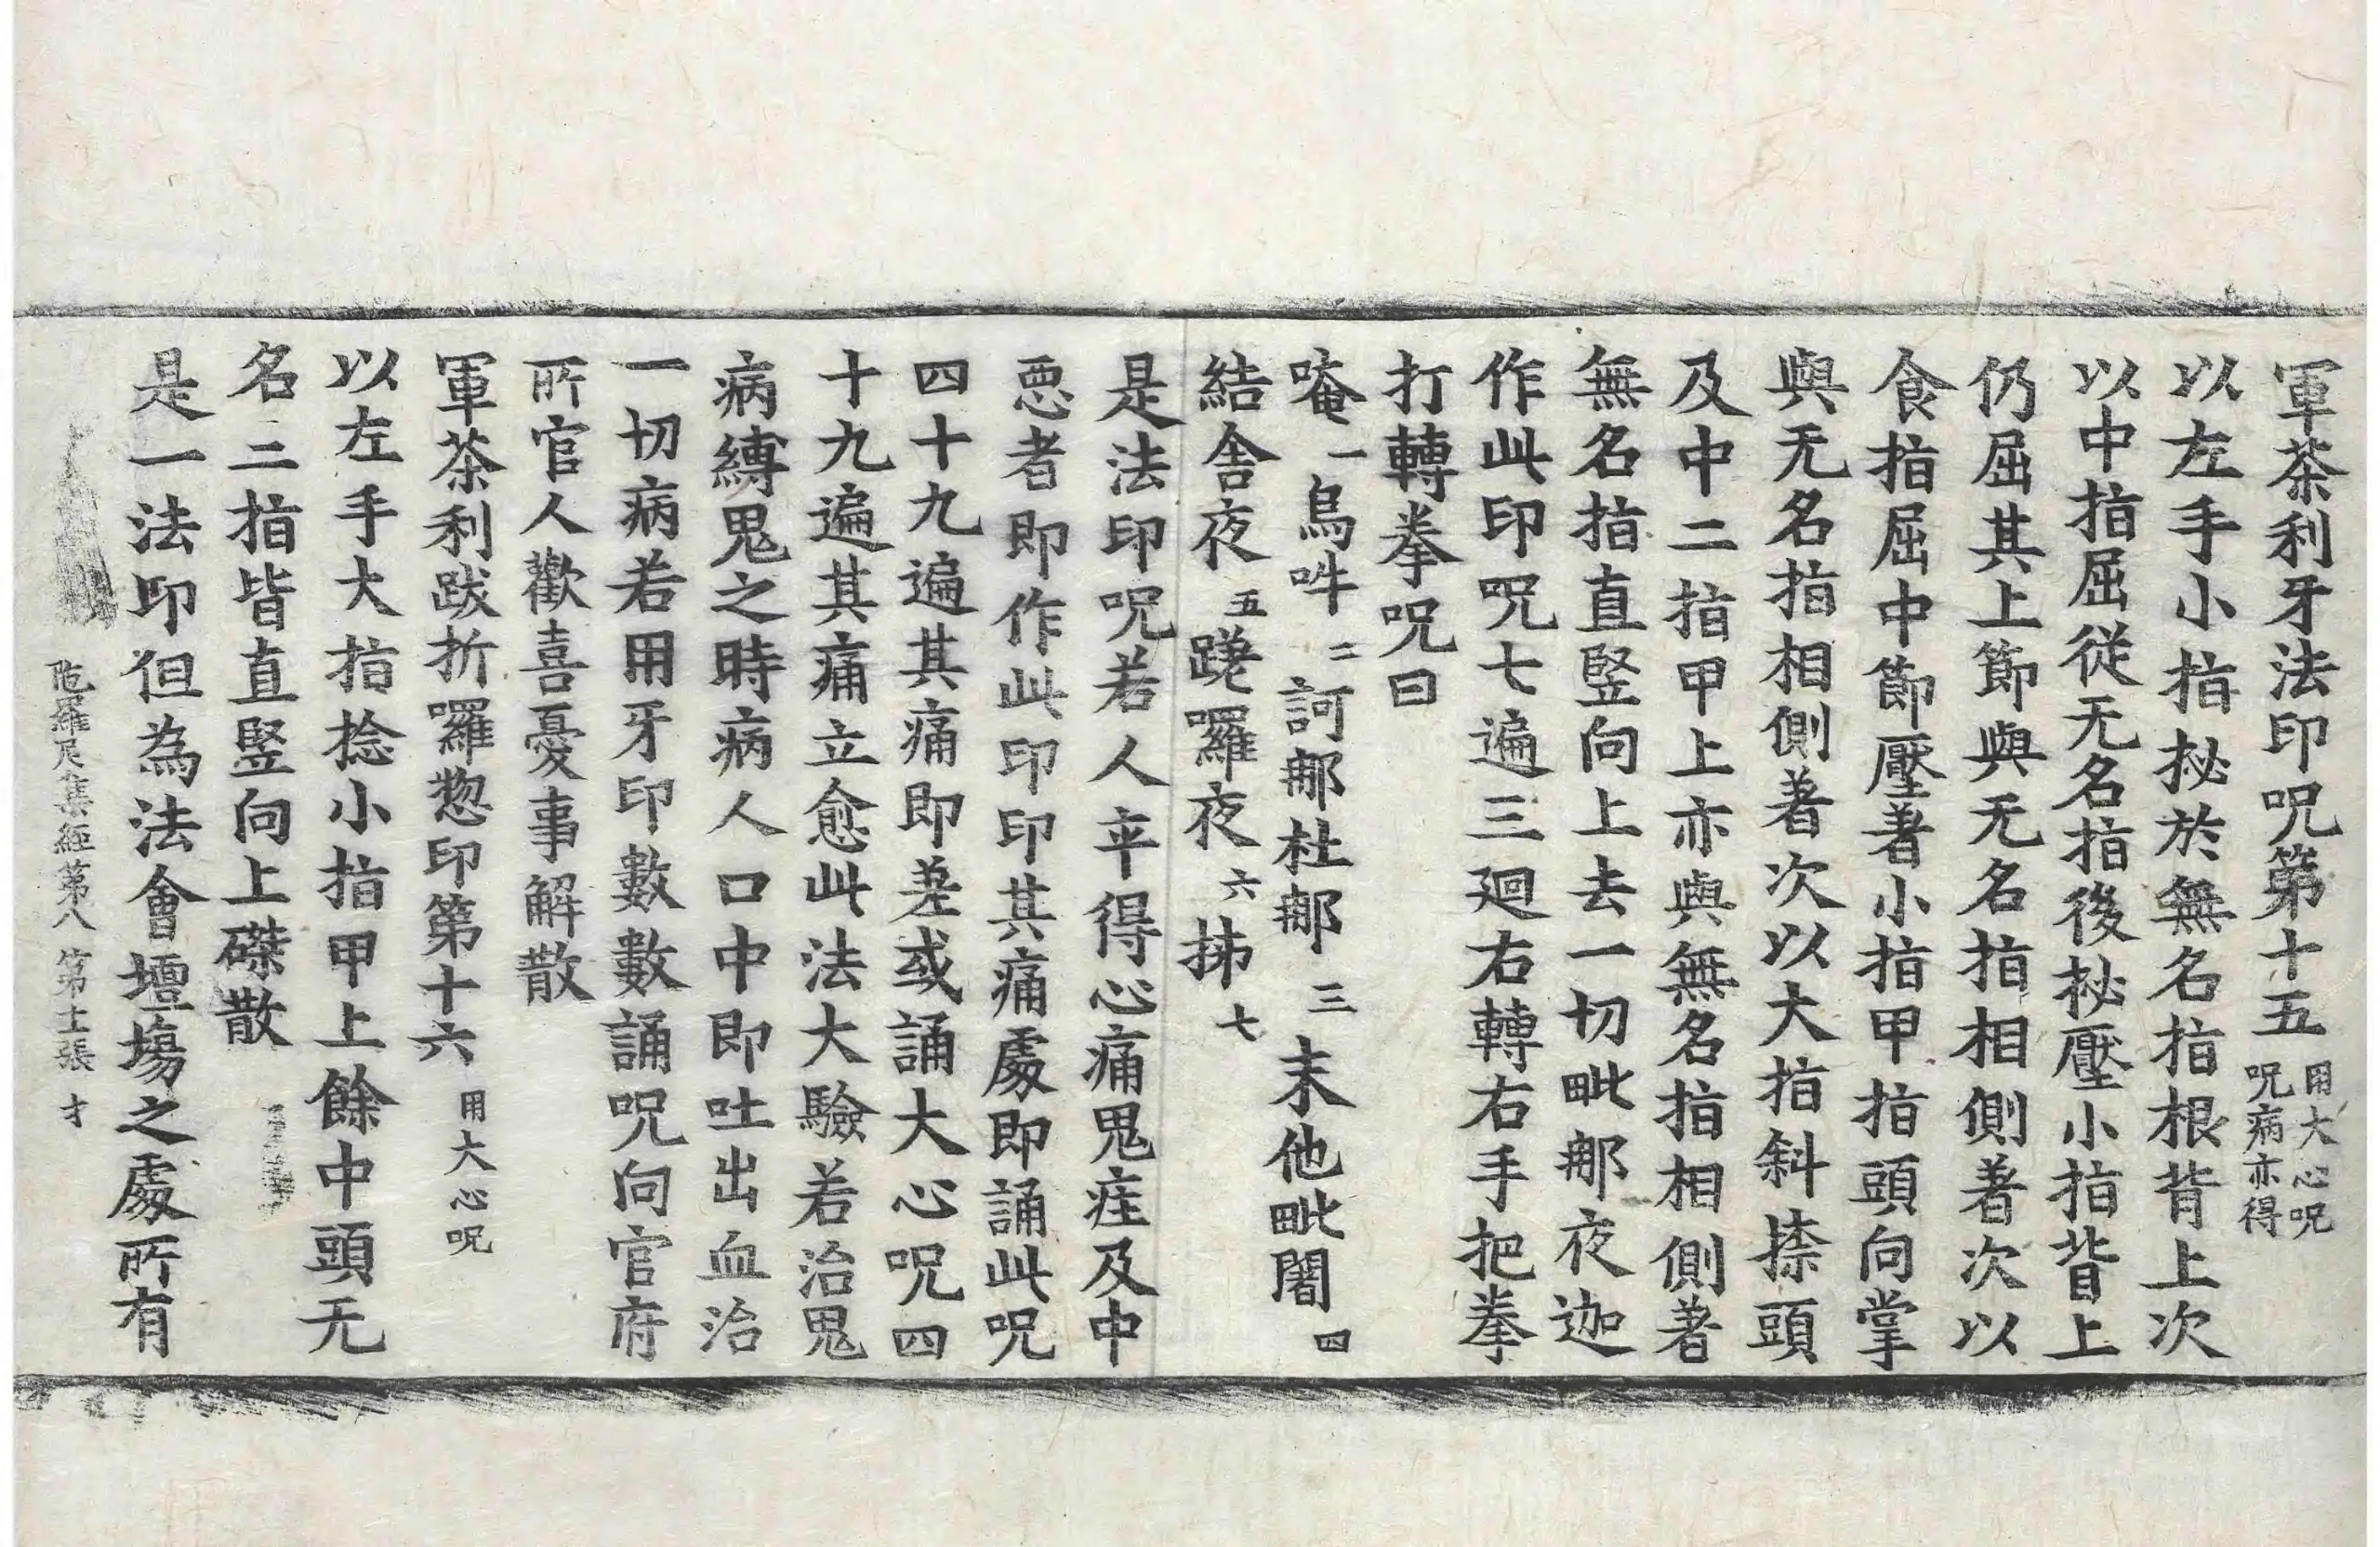 軍茶利牙法印呪第十五用大心呪呪病亦得
以左手小指拯於無名指根背上次
以中指屈從无名指後拯壓小指背上
仍屈其上節與无名指相側著次以
食指屈中節壓著小指甲指頭向掌
與无名指相側著次以大指斜捺頭
及中二指甲上亦與無名指相側著
無名指直竪向上去一切毗那夜迦
作此印呪七遍三迴右轉右手把拳
打轉拳呪曰
唵一烏吽二訶那杜那三末他毗闍四
結舍夜五蹉囉夜六抪七
是法印呪若人卒得心痛鬼疰及中
惡者即作此印印其痛處即誦此呪
四十九遍其痛即差或誦大心呪四
十九遍其痛立愈此法大驗若治鬼
病縛鬼之時病人口中即吐出血治
一切病若用牙印數數誦呪向官府
所官人歡喜憂事解散
軍茶利跋折囉惣印第十六用大心呪
以左手大指捻小指甲上餘中頭无
名二指皆直竪向上磔散
是一法印但為法會壇場之處所有
陁羅尼集經第八 第十一張 才